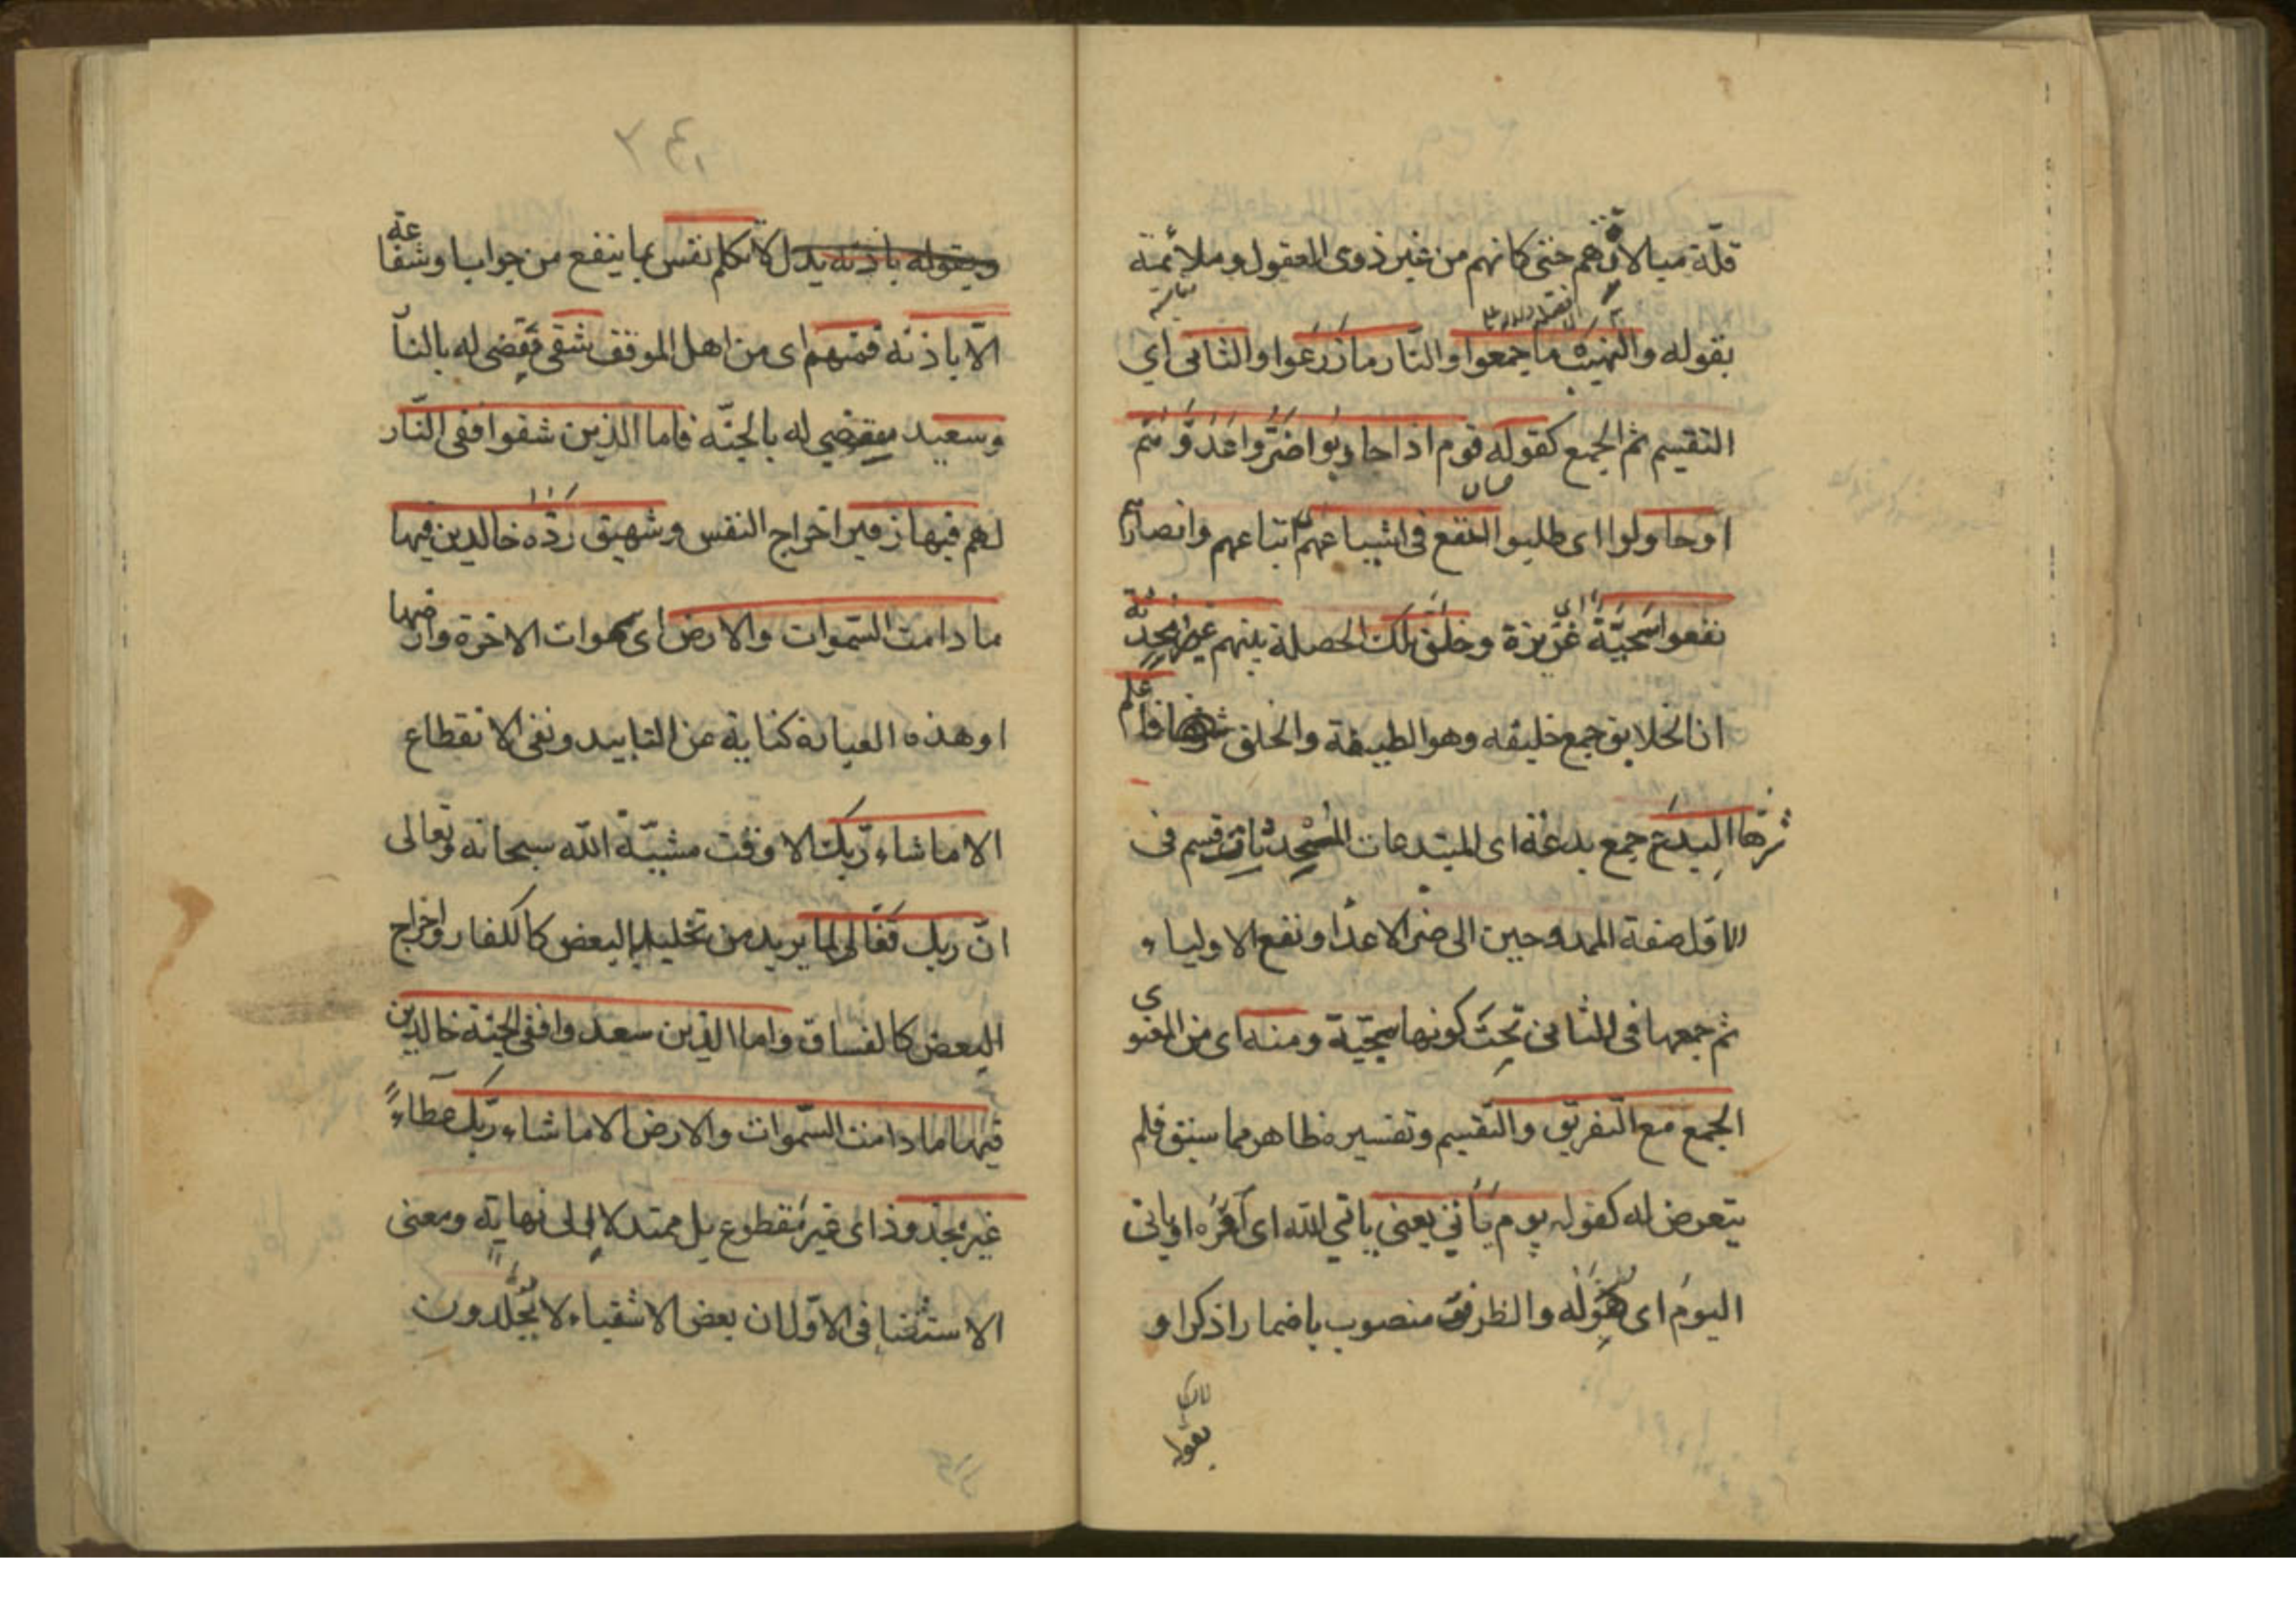 قلّة مبالاتهم حتى كانهم من غير ذوى العقول وملائمة
بقوله والنهب ما جمعوا والنار ما زرعوا والثانى اى
التقسيم ثم الجمع كقوله قوم اذا حاربوا ضرّوا عدوّهم
او حاولوا اى طلبوا النفع فى اشياعهم اتباعهم وانصارهم
نفعوا سَجيّة اى غريزة وخلق تلك الخصلة منهم غير محدثة
ان الخلايق جمع خليقه وهو الطبيعة والخلق فاعلم
شرّها البدع جمع بدعة اى المبتدعات المحدثات قسم فى
الاول صفة الممدوحين الى ضر الاعدا ونفع الاولياء
ثم جمعها فى الثانى تحت كونها سجيّة ومنه اى من المعنوى
الجمع مع التفريق والتقسيم وتفسيره ظاهر مما سبق فلم
يتعرض له كقوله يوم يأتي يعنى ياتي الله اى امره او ياتى
اليوم اى هوله والظرف منصوب باضمار اذكر او
بقوله
٣٤٢
ويقوله باذنه يدل لا تكلم نفس بما ينفع من جواب او شفاعة
الّا باذنه فمنهم اى من اهل الموقف شقى يقضى له بالنار
وسعيد يقضي له بالجنّه فاما الذين شقوا ففى النّار
لهم فيها زفير اخراج النفس وشهيق ردّه خالدين فيها
ما دامت السّموات والارض اى سموات الاخرة وارضها
او هذه العبارة كناية عن التابيد ونفى الانقطاع
الا ما شاء ربّك الا وقت مشيّة الله سبحانه وتعالى
انّ ربك فعّال لما يريد من تخليد البعض كالكفار واخراج
البعض كالفساق واما الذين سعدوا ففى الجنة خالدين
فيها ما دامت السّموات والارض الا ما شاء ربّك عطاءً
غير مجذوذ اى غير مقطوع بل ممتد لا الى نهاية ومعنى
الاستثنا فى الاوّل ان بعض الاشقياء لا يخلدون